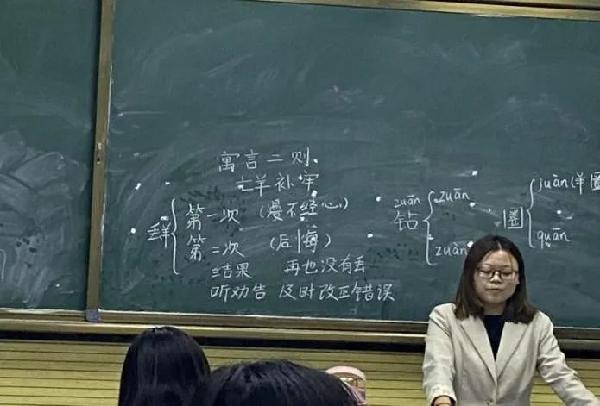 寓言二则、
亡羊补牢
丢羊
第一次 (漫不经心)
第二次 (后悔)
结果 再也没有丢
听劝告 及时改正错误
zuān
钻
zuān
zuàn
圈
juàn (羊圈
quān